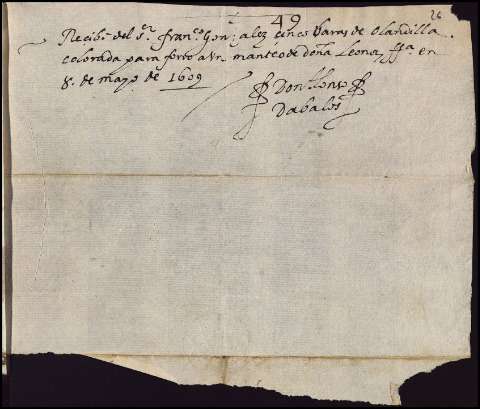 26
49
Recibi del Sr. franco Gonzalez cinco Varas de Olandilla
colorada para forro a Vn manteo de doña Leonor, ffa. en
8. de mayo de 1609
Don Alonso
Dabalos